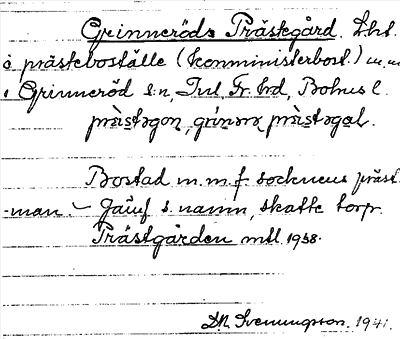 Grinneröds Prästgård. Lht.
å prästeboställe (komministerbost.) m.m.
i Grinneröd sn, Inl. Fr. hd, Bohus l.
Bostad m.m. f. socknens präst-
man. – Jämf s. namn, skatte torp.
Prästgården mtl. 1938.
D.A. Svenungsson. 1941.